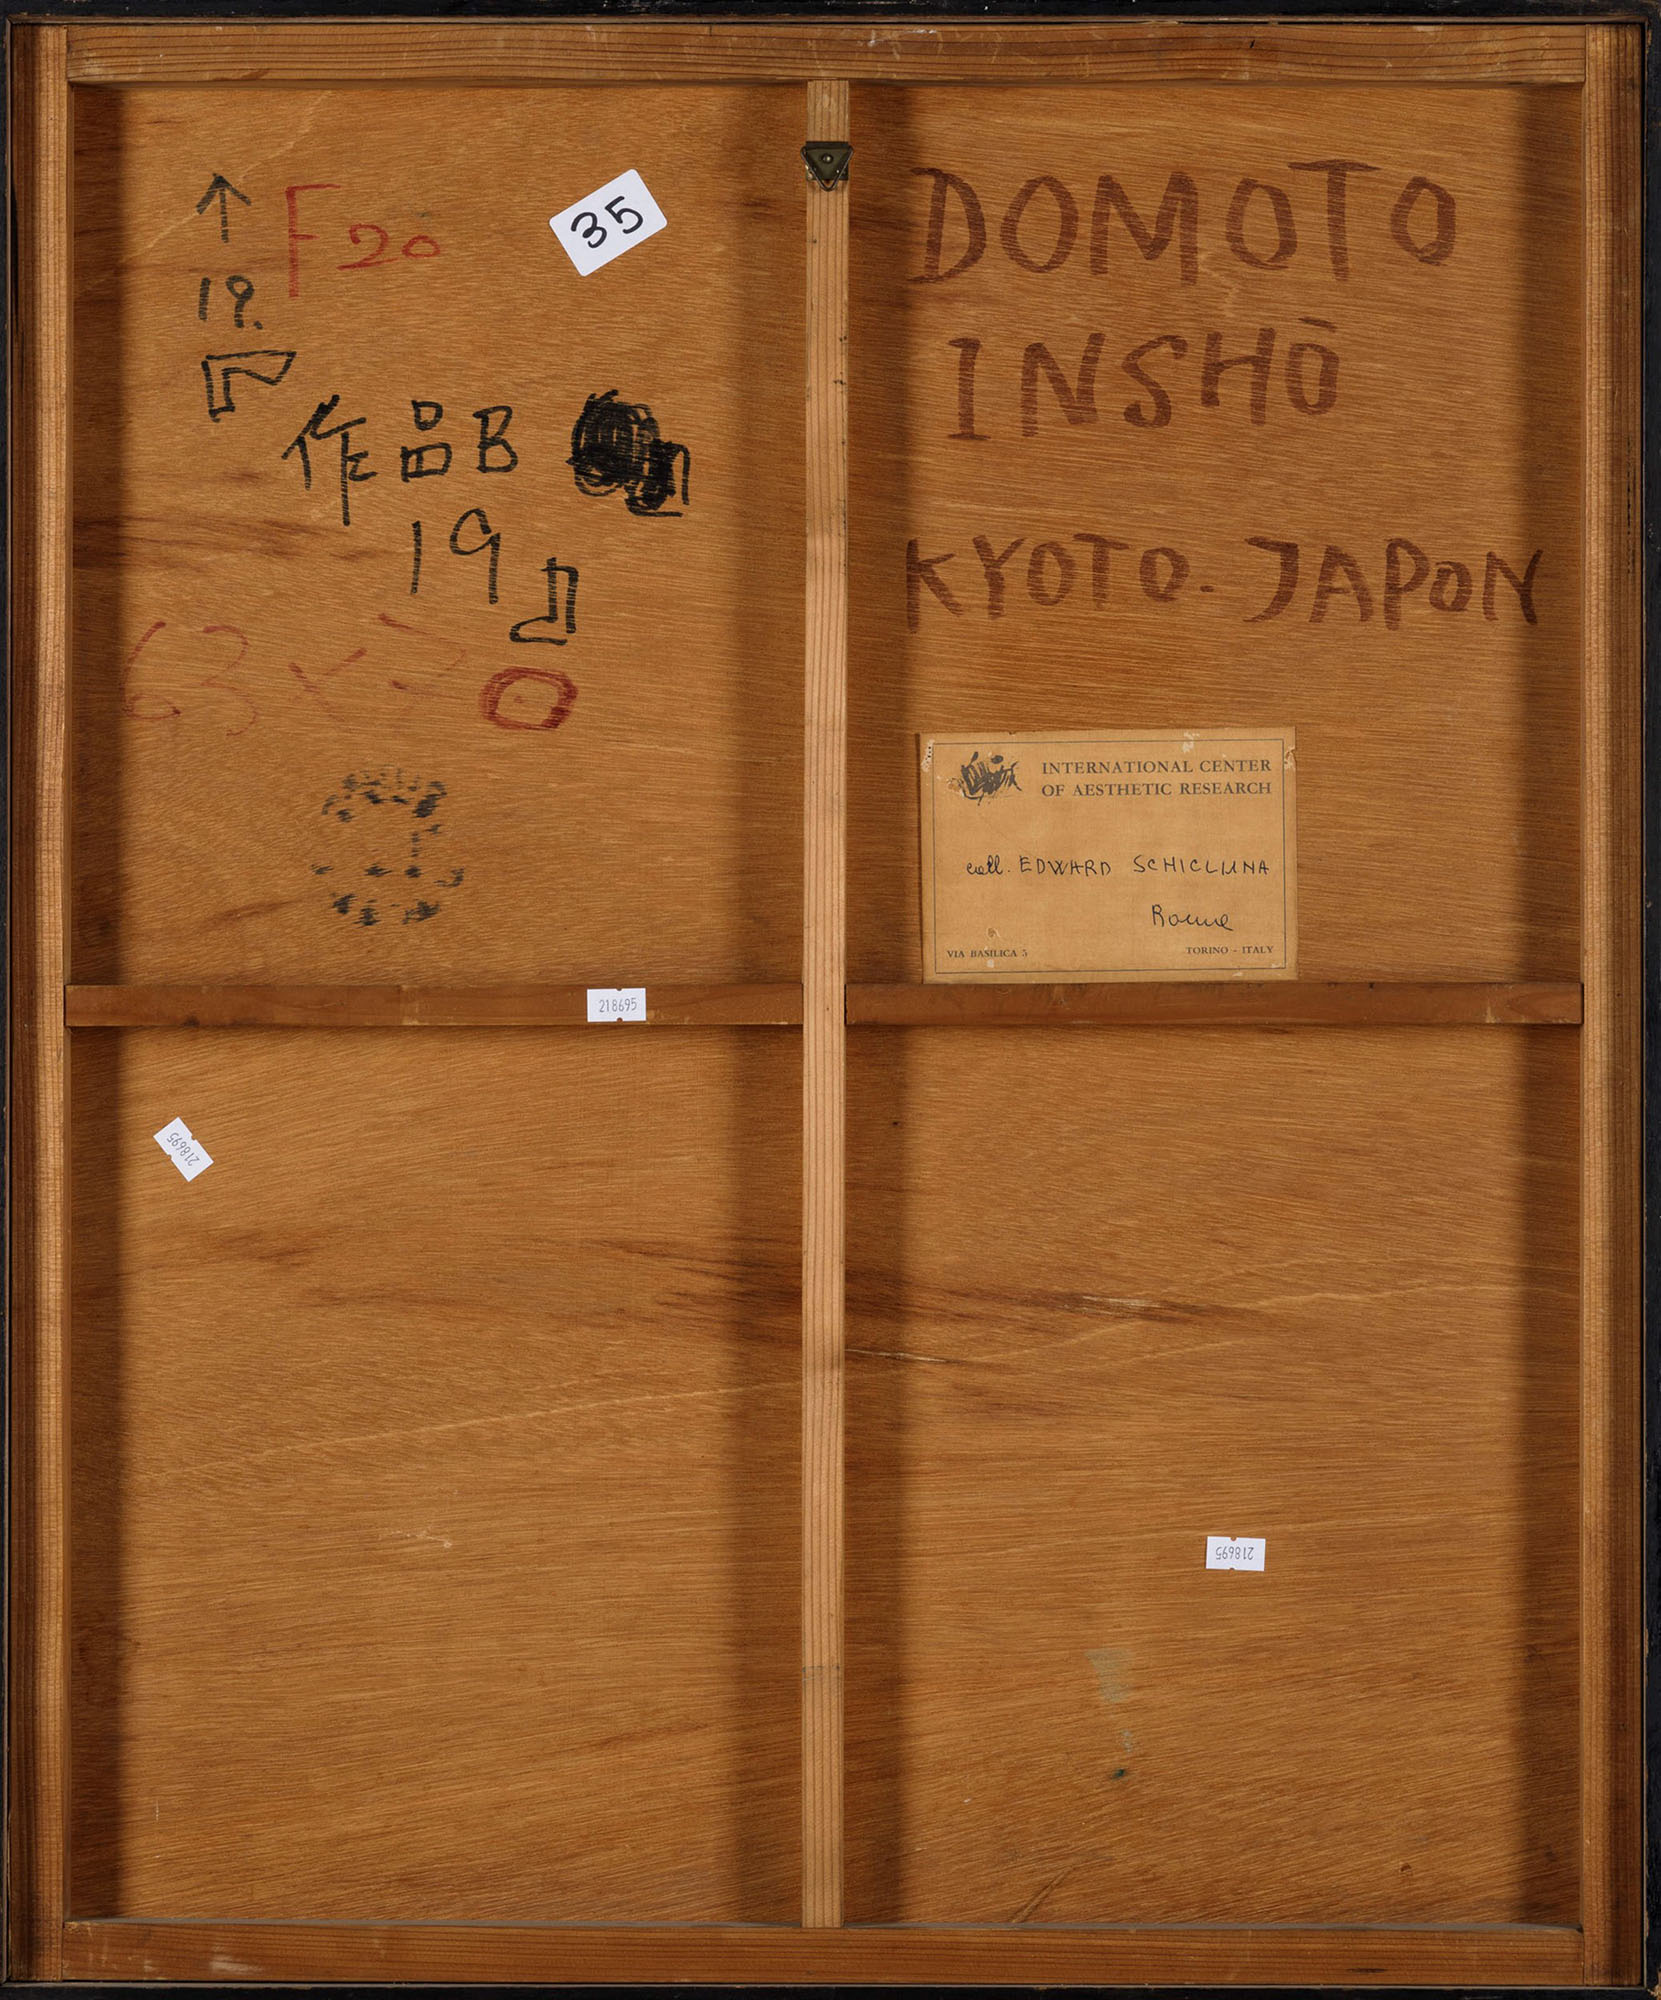 ↑ F20
35
19.
『作品B
19』
63×
DOMOTO
INSHŌ
KYOTO-JAPON
INTERNATIONAL CENTER
OF AESTHETIC RESEARCH
coll. EDWARD SCHICLUNA
Rome
VIA BASILICA 5 TORINO - ITALY
218695
218695
218695